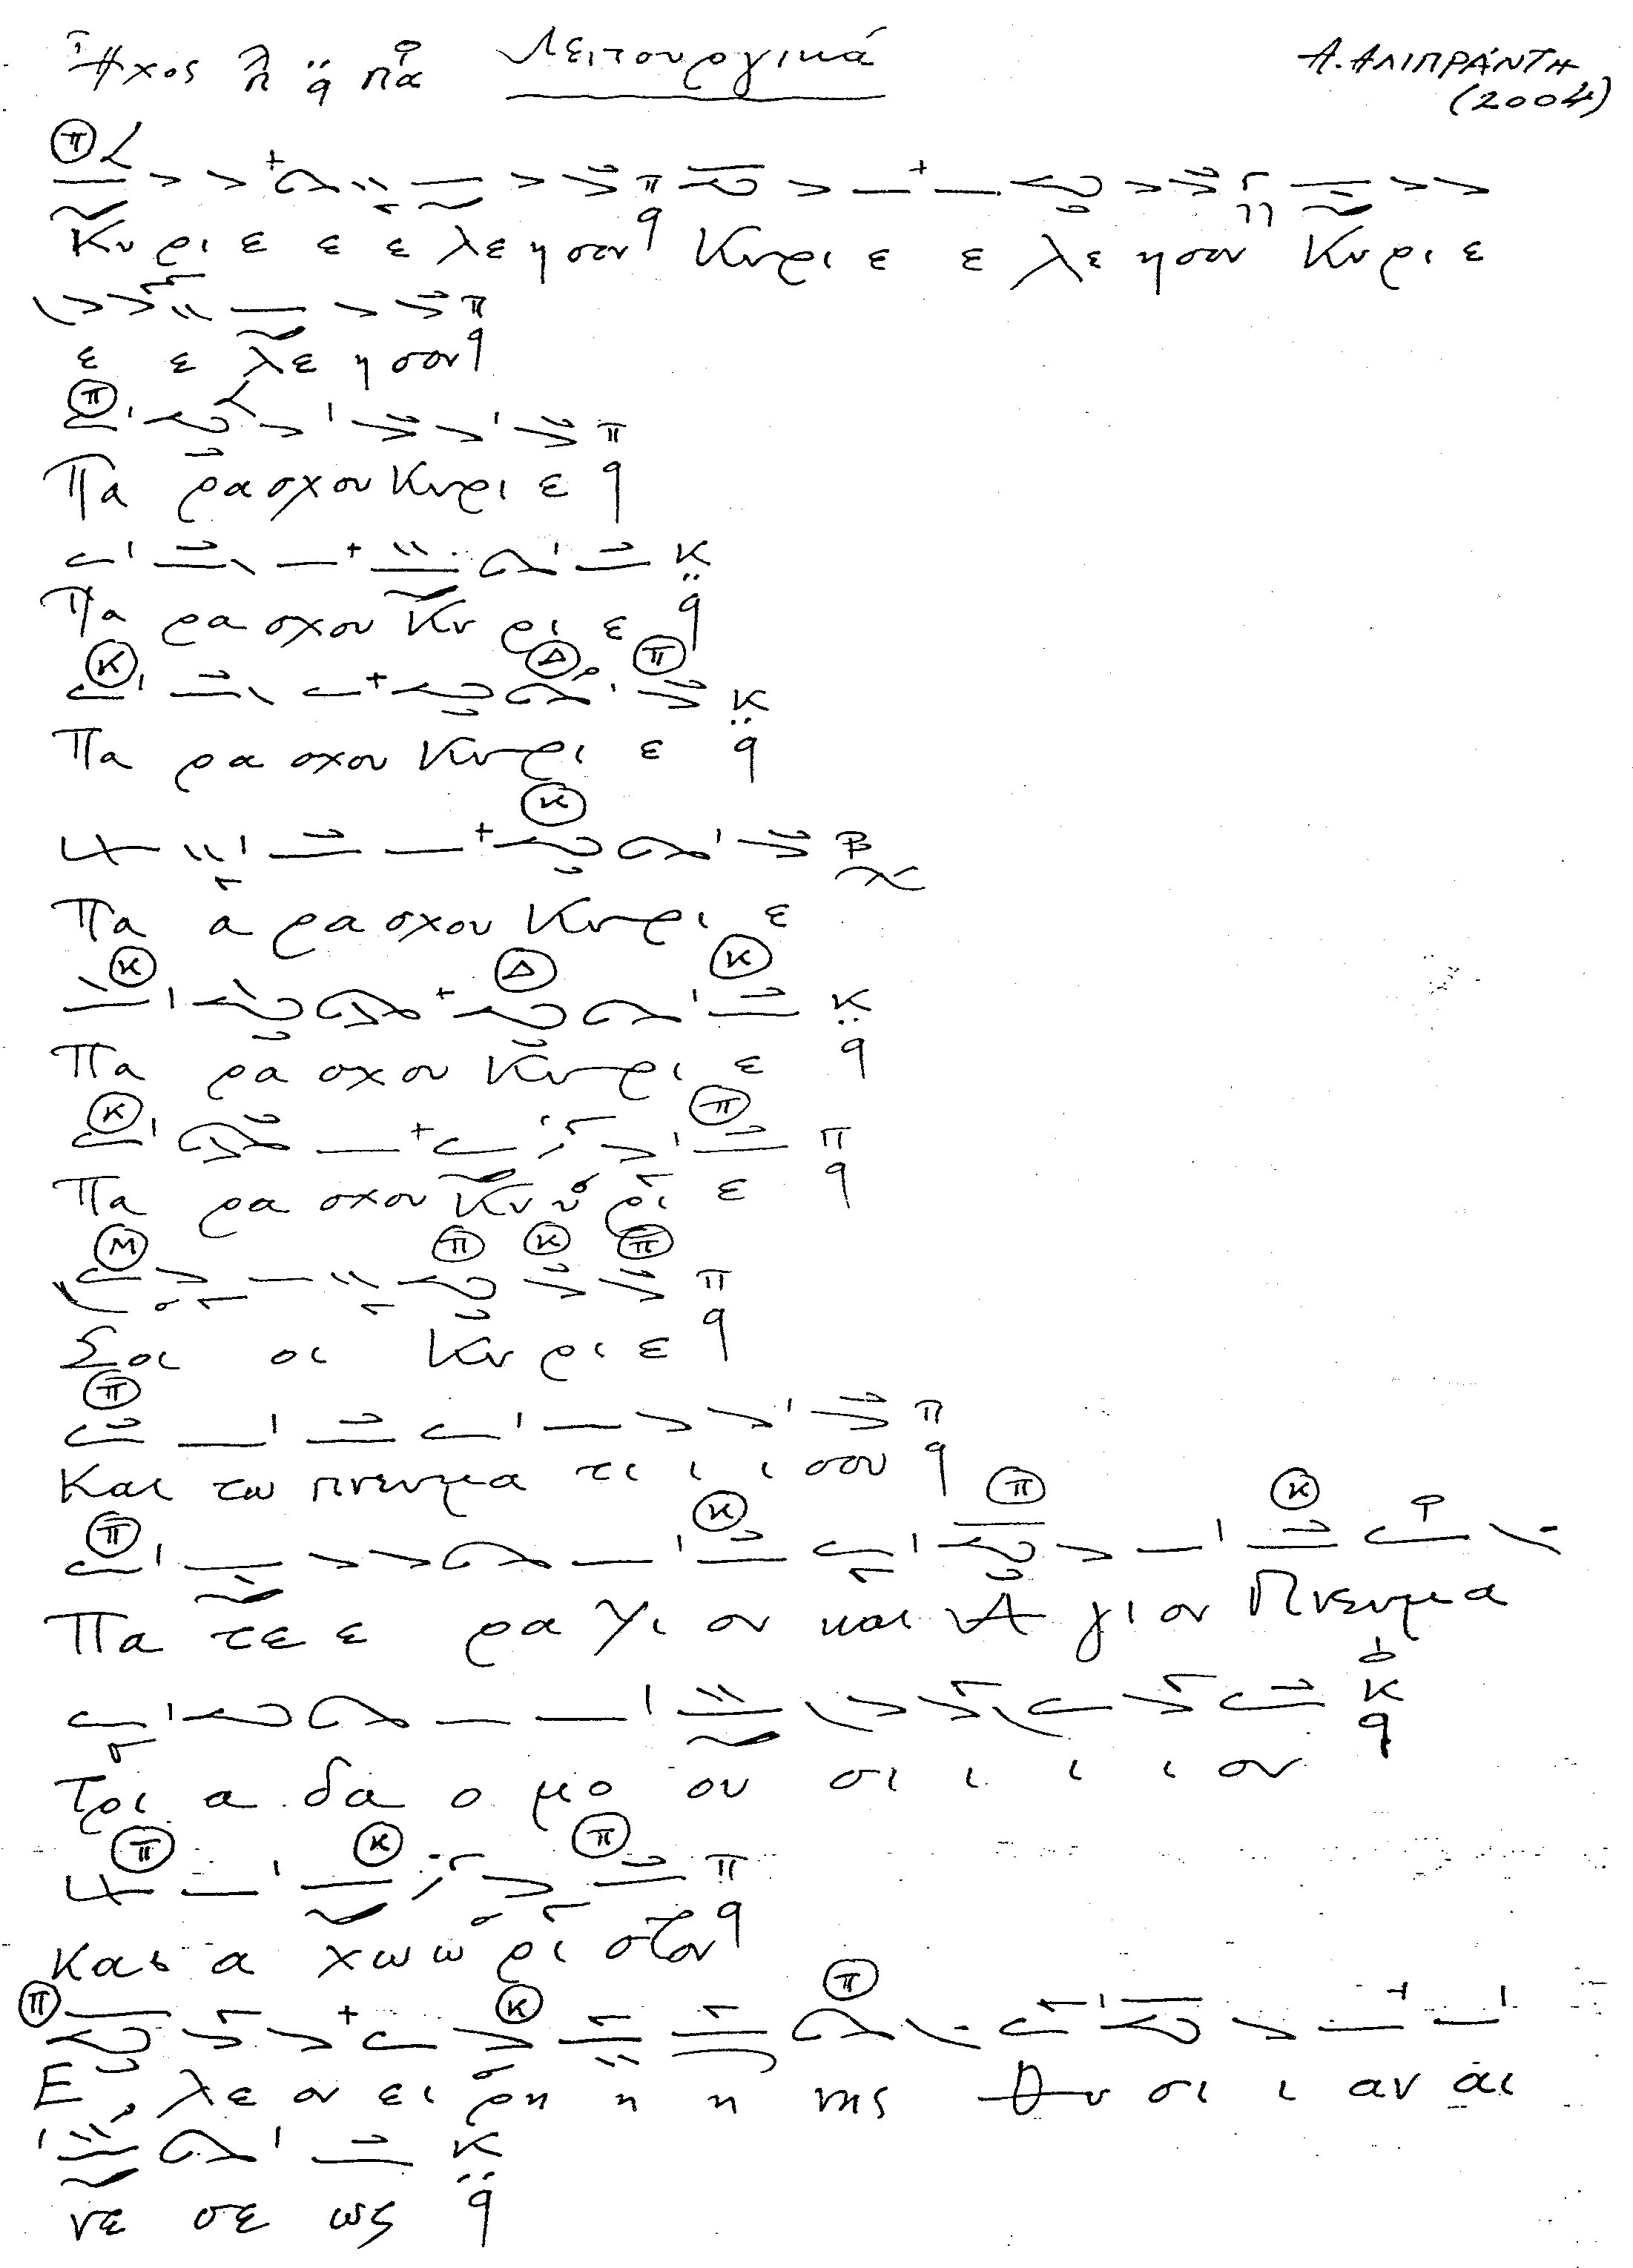 Ἦχος λ π q πα Λειτουργικά Α. ΑΛΙΠΡΑΝΤΗ
(2004)
Κυ ρι ε ε ε λε η σον Κυ ρι ε ε λε η σον Κυ ρι ε
ε ε λε η σον
Πα ρα σχου Κυ ρι ε
Πα ρα σχου Κυ ρι ε
Πα ρα σχου Κυ ρι ε
Πα α ρα σχου Κυ ρι ε
Πα ρα σχου Κυ ρι ε
Πα ρα σχου Κυ υ ρι ε
Σοι οι Κυ ρι ε
Και τω πνευμα τι ι ι σου
Πα τε ε ρα Υι ον και Α γι ον Πνευμα
Τρι α δα ο μο ου σι ι ι ι ον
και α χω ω ρι στον
Ε λε ον ει ρη η η νης Θυ σι ι αν αι
νε σε ως